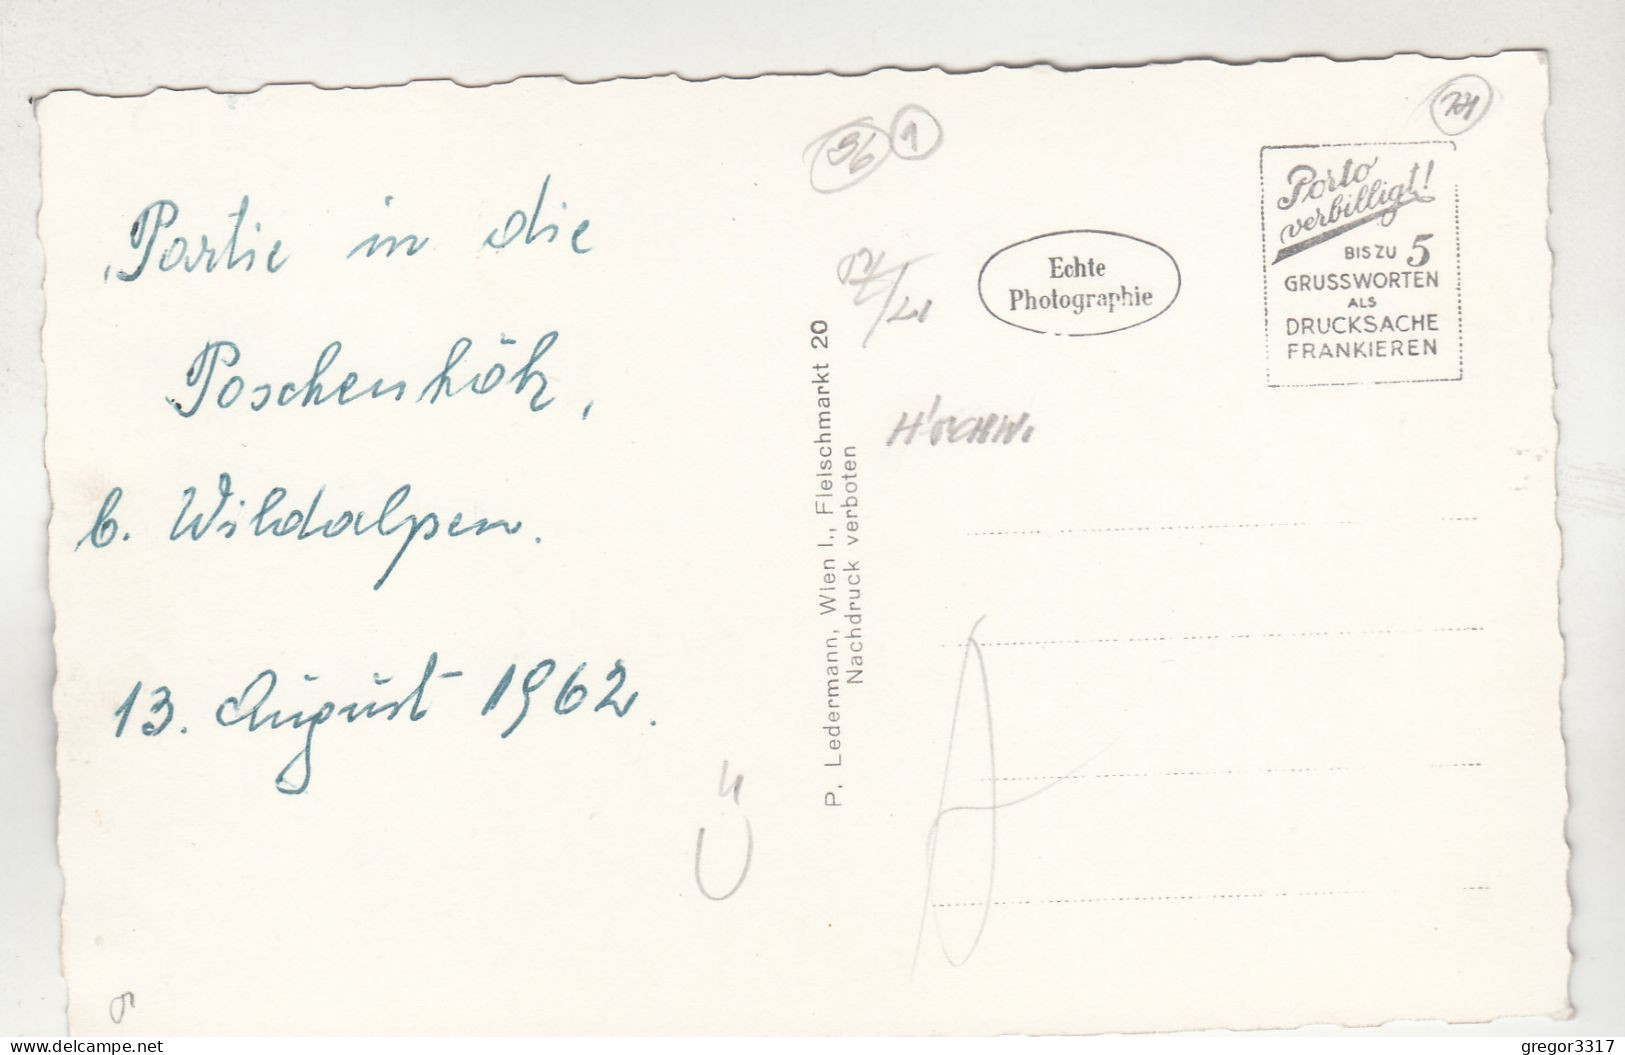 Partie in die
Poschenhöh,
b. Wildalpen.
13. August 1962.
Ü
P. Ledermann, Wien I., Fleischmarkt 20
Nachdruck verboten
36
1
Echte
Photographie
Porto
verbilligt!
BIS ZU 5
GRUSSWORTEN
ALS
DRUCKSACHE
FRANKIEREN
A
delcampe.net
gregor3317